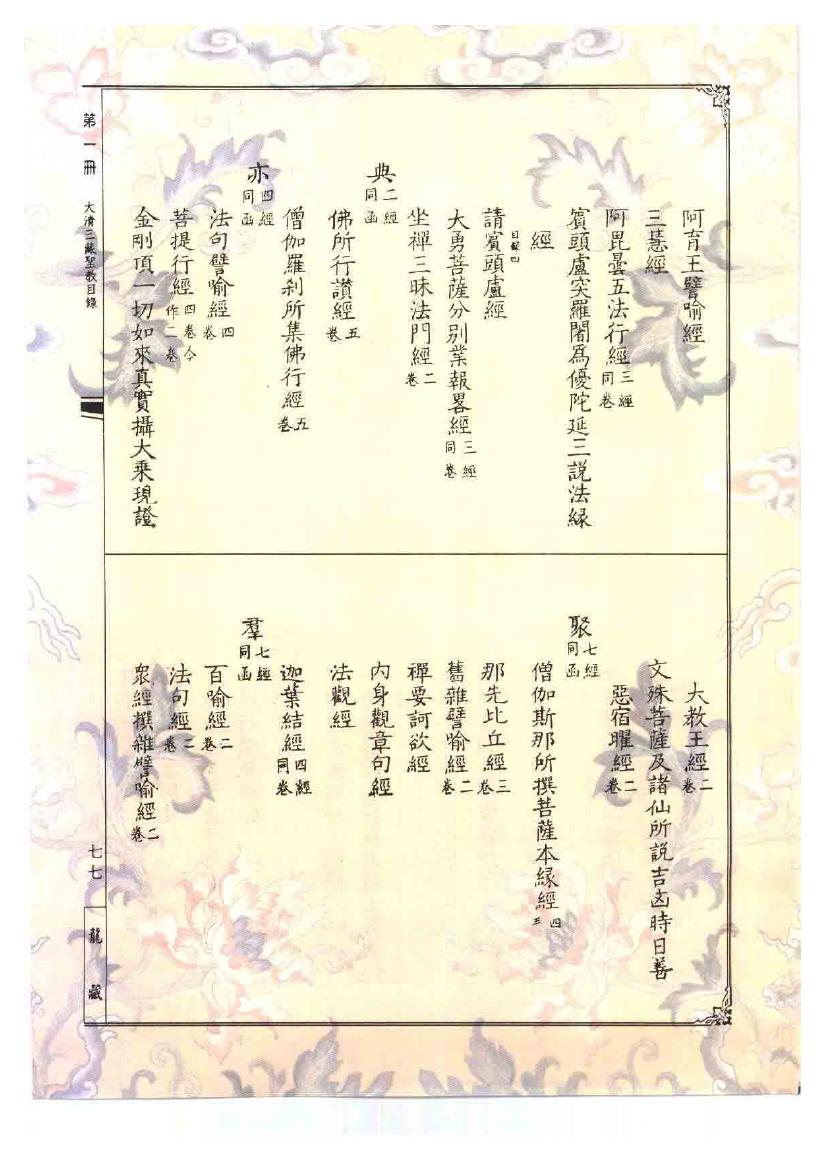 阿育王譬喻經
三慧經
阿毘曇五法行經三經同卷
賓頭盧突羅闍爲優陀延王說法緣
經
目錄四
請賓頭盧經
大勇菩薩分別業報畧經三經同卷
坐禪三昧法門經二卷
典二經同函
佛所行讚經五卷
僧伽羅刹所集佛行經五卷
亦四經同函
法句譬喻經四卷
菩提行經四卷今作二卷
金剛頂一切如來真實攝大乘現證
大教王經二卷
文殊菩薩及諸仙所說吉凶時日善
惡宿曜經二卷
聚七經同函
僧伽斯那所撰菩薩本緣經四三
那先比丘經三卷
舊雜譬喻經二卷
禪要訶欲經
內身觀章句經
法觀經
迦葉結經四經同卷
羣七經同函
百喻經二卷
法句經二卷
衆經撰雜譬喻經二卷
第一冊 大清三藏聖教目錄
七七
龍藏